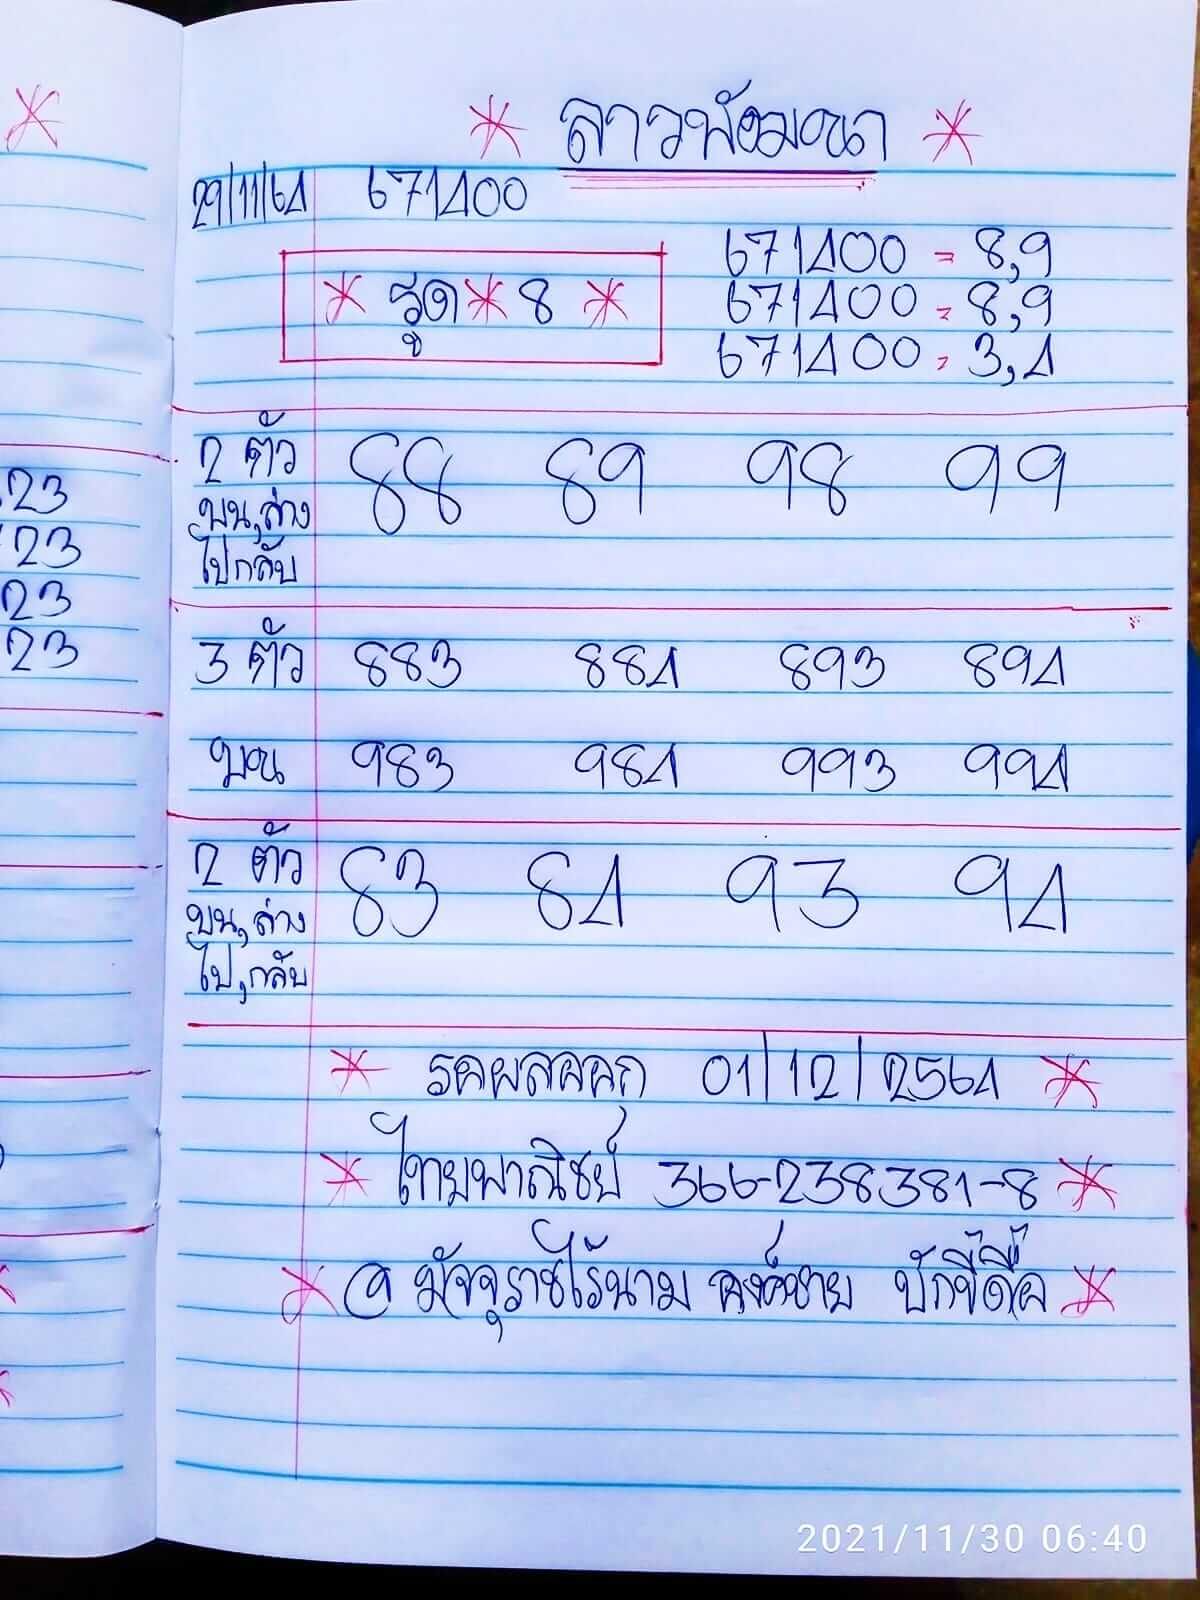 23
23
23
23
ลาวพัฒนา
29/11/64 671400
671400 = 8,9
รูด 8
671400 = 8,9
671400 = 3,4
2 ตัว 88 89 98 99
บน,ล่าง
ไปกลับ
3 ตัว 883 884 893 894
บน 983 984 993 994
2 ตัว 83 84 93 94
บน,ล่าง
ไป,กลับ
รอผลออก 01/12/2564
ไทยพาณิชย์ 366-238381-8
@ มัจจุราชไร้นาม องค์ชาย บักขี่ดื้อ
2021/11/30 06:40